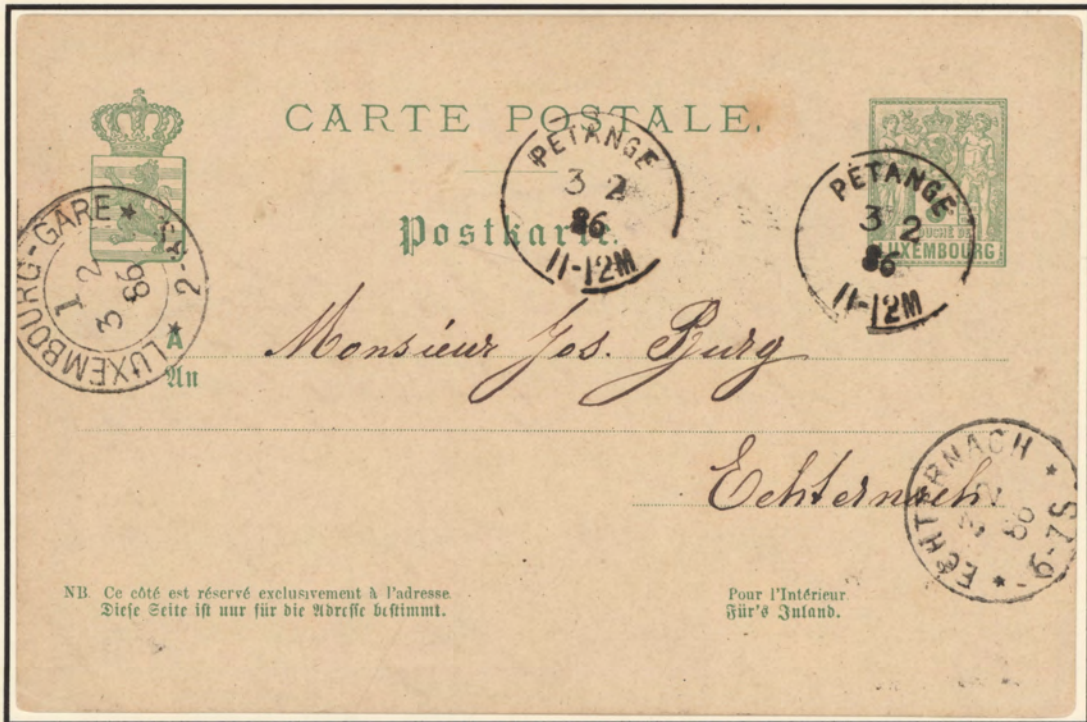 CARTE POSTALE.
PETANGE
3 2
86
11-12M
PETANGE
3 2
86
11-12M
DUCHÉ DE
LUXEMBOURG
Postkarte.
LUXEMBOURG-GARE * 2-3S *
1 2
3 86
A
An
Monsieur Jos. Burg
Echternach.
ECHTERNACH * 6-7S *
3 2
86
NB. Ce côté est réservé exclusivement à l'adresse.
Diese Seite ist nur für die Adresse bestimmt.
Pour l'Intérieur.
Für's Inland.